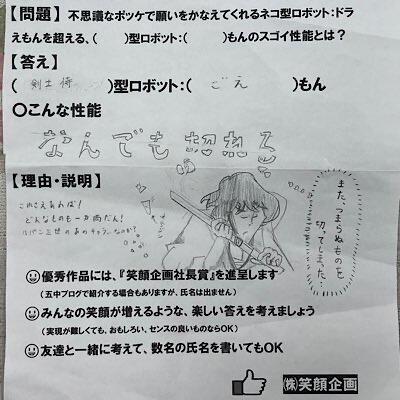 【問題】不思議なポッケで願いをかなえてくれるネコ型ロボット:ドラ
えもんを超える、(　　)型ロボット:(　　)もんのスゴイ性能とは?
【答え】
(剣士 侍)型ロボット:(ごえ)もん
〇こんな性能
なんでも切れる
【理由・説明】
これさえあれば!
どんなものも一刀両だん!
ルパン三世のあのキャラなのか?
また、つまらぬものを
切ってしまた…
優秀作品には、『笑顔企画社長賞』を進呈します
(五中ブログで紹介する場合もありますが、氏名は出ません)
みんなの笑顔が増えるような、楽しい答えを考えましょう
(実現が難しくても、おもしろい、センスの良いものならOK)
友達と一緒に考えて、数名の氏名を書いてもOK
㈱笑顔企画